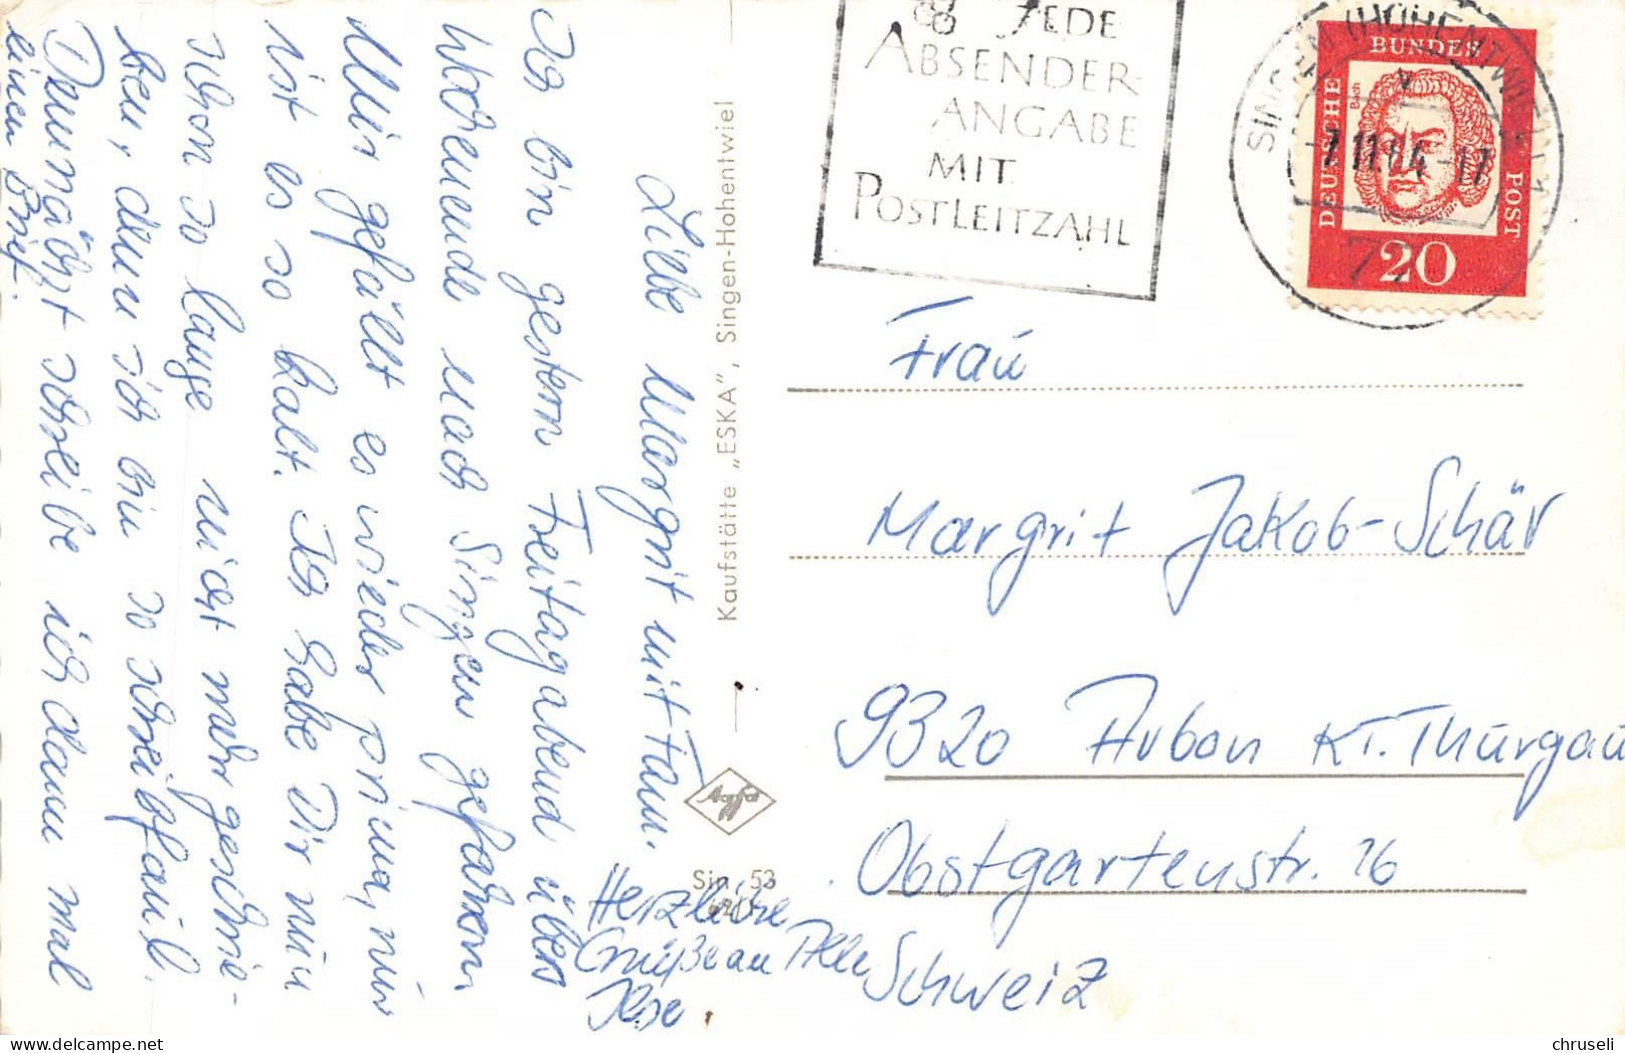 Liebe Margrit mit Fam.
Ich bin gestern Freitagabend übers
Wochenende nach Singen gefahren.
Mir gefällt es wieder prima, nur
ist es so kalt. Ich habe Dir nun
schon so lange nicht mehr geschrie-
ben, denn ich bin so schreibfaul.
Demnächst schreibe ich dann mal
einen Brief.
Herzliche
Grüße an Alle
Ilse.
Kaufstätte „ESKA“, Singen-Hohentwiel
Agfa
Sin 53
JEDE
ABSENDER-
ANGABE
MIT
POSTLEITZAHL
SINGEN (HOHENTWIEL)
-7.11.64-17
DEUTSCHE
BUNDES
POST
Bach
20
Frau
Margrit Jakob-Schär
9320 Arbon Kt. Thurgau
Obstgartenstr. 16
Schweiz
chruseli